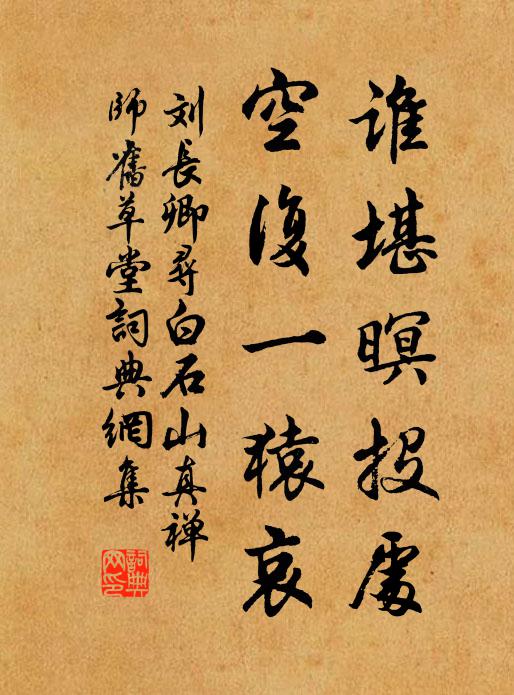 谁堪暝投處
空復一猿哀
刘長卿尋白石山真禅
師舊草堂詞典網集
詞典
网印